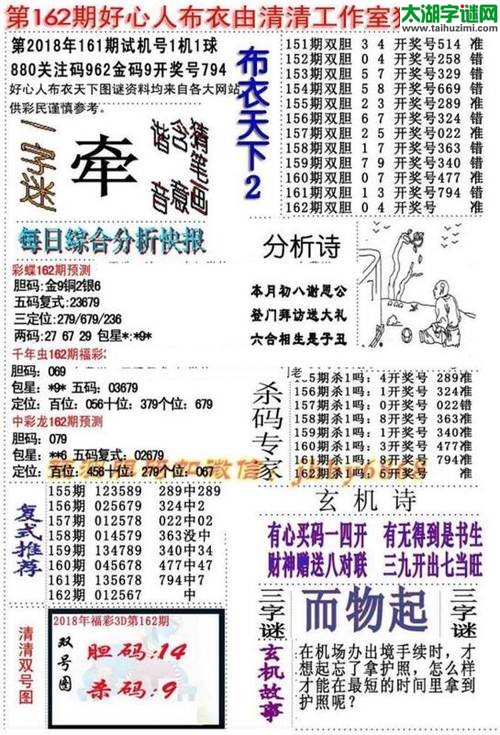 太湖字谜网
www.taihuzimi.com
第162期好心人布衣由清清工作室
第2018年161期试机号1机1球
880关注码962金码9开奖号794
好心人布衣天下图谜资料均来自各大网站
供彩民谨慎参考。
布衣天下2
151期双胆 3 4 开奖号514 准
152期双胆 0 4 开奖号258 错
153期双胆 0 4 开奖号329 错
154期双胆 5 8 开奖号669 错
155期双胆 3 4 开奖号289 错
156期双胆 0 1 开奖号324 错
157期双胆 0 4 开奖号022 准
158期双胆 0 7 开奖号563 错
159期双胆 7 9 开奖号340 错
160期双胆 0 7 开奖号477 准
161期双胆 1 3 开奖号794 错
162期双胆 0 4 开奖号 准
一字迷
牵
谐含猜
音意笔画
每日综合分析快报
分析诗
本月初八谢恩公
登门拜访送大礼
六合相生是子丑
彩蝶162期预测
胆码:金9铜2银6
五码复式:23679
三定位:279/679/236
两码:27 67 29 包星*:*9*
千年虫162期福彩
胆码: 069
包星: *9* 五码: 03679
定位: 百位: 056十位: 379个位: 679
中彩龙162期预测
胆码: 079
包星: **6 五码复式: 02679
定位: 百位: 456十位: 279个位: 067
杀码专家
155期杀1吗: 4开奖号 289准
156期杀1吗: 5开奖号 324准
157期杀1吗: 0开奖号 022错
158期杀1吗: 4开奖号 563准
159期杀1吗: 1开奖号 340准
160期杀1吗: 8开奖号 477准
161期杀1吗: 5开奖号 794准
162期杀1吗: 5开奖号 准
复式推荐
155期 123589 289中289
156期 025679 324中2
157期 012578 022中02
158期 014579 563没中
159期 134789 340中34
160期 045678 477中47
161期 135678 794中7
162期 012567 中
玄机诗
有心买码一四开 有无得到是书生
财神赠送八对联 三九开出七当旺
清清双号图
2018年福彩3D第162期
双号图
胆码:14
杀码:9
三字谜
而物起
三字谜
玄机故事
在机场办出境手续时，才
想起忘了拿护照，怎么样
才能在最短的时间里拿到
护照呢？